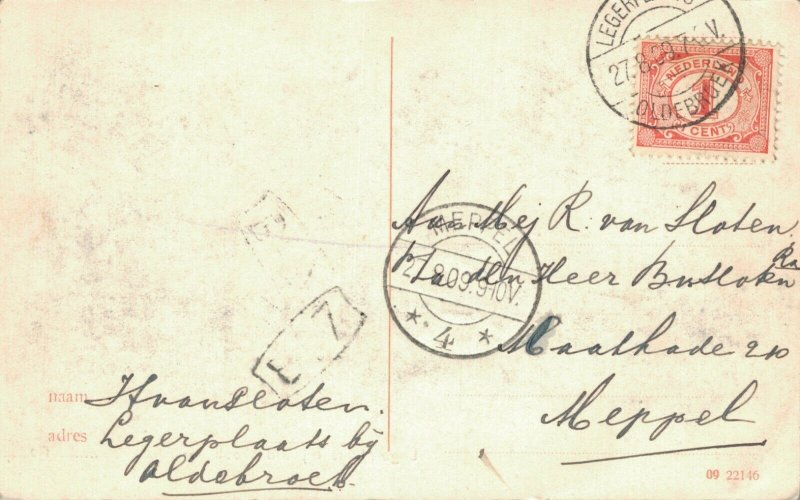 LEGERPLAATS
27.8.09.7 V.
OLDEBROEK
NEDERLAND
1
CENT
Aan Mej R. van Sloten.
p/a den Heer B. v Sloten
MEPPEL
8.09.9-10V.
4
Maatkade 210
Meppel
E Z
naam Hvansloten.
adres Legerplaats bij
Oldebroek.
09 22146